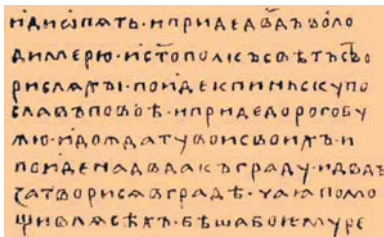 идиѡпѧть·ипридедв҃дъволо
димерю·ист҃ополкъсвѣтъство
рислѧхы·поидекпиньскупо
славъповоѣ·ипридедорогобу
жю·идождатувоисвоихъ·и
поиденадв҃дакъграду·идв҃дъ
затворисѧвградѣ·чаꙗпомо
щивлѧсѣхъ·бѣшабоѥмуре